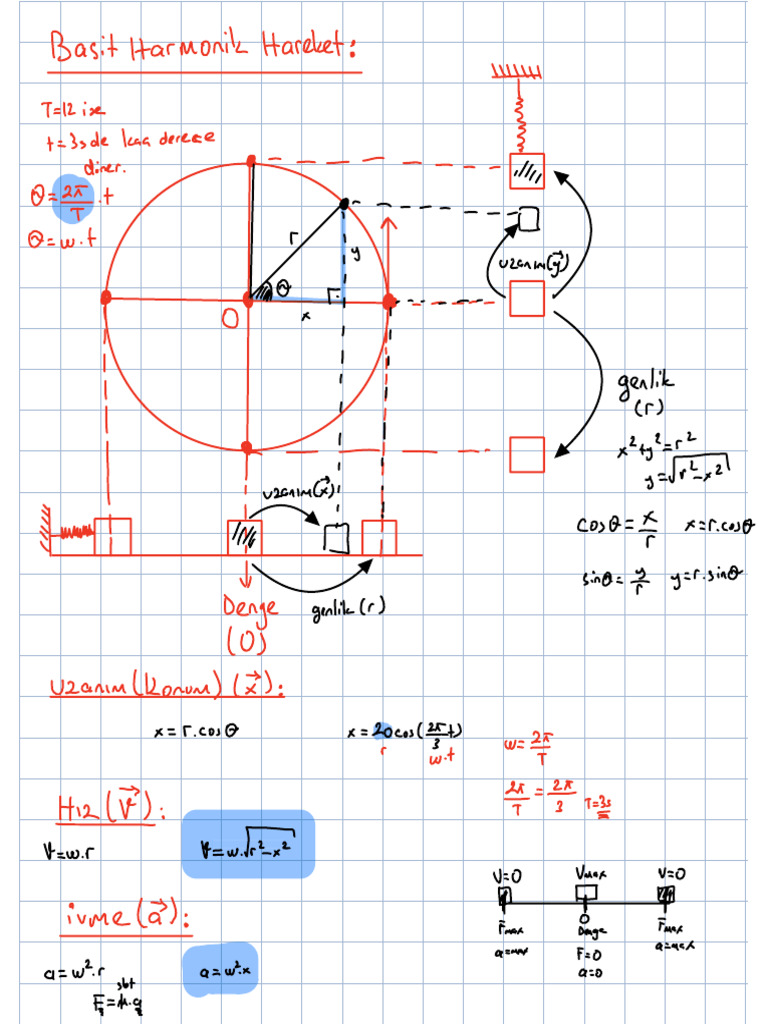 Basit Harmonik Hareket:
T=12 ise
t=3s de kaç derece
döner.
θ=2π/T.t
θ=w.t
r
θ
y
x
O
uzanım(y⃗)
genlik
(r)
x²+y²=r²
y=√r²-x²
cosθ=x/r x=r.cosθ
sinθ=y/r y=r.sinθ
uzanım(x⃗)
genlik(r)
Denge
(O)
Uzanım(Konum)(x⃗):
x=r.cosθ x=20cos(2π/3 t)
r w.t
w=2π/T
2π/T=2π/3 T=3s
Hız(V⃗):
V=w.r V=w.√r²-x²
V=0 Vmax V=0
O
Fmax Denge Fmax
a=max F=0 a=max
a=0
ivme(a⃗):
a=w².r a=w².x
sbt
F=m.a